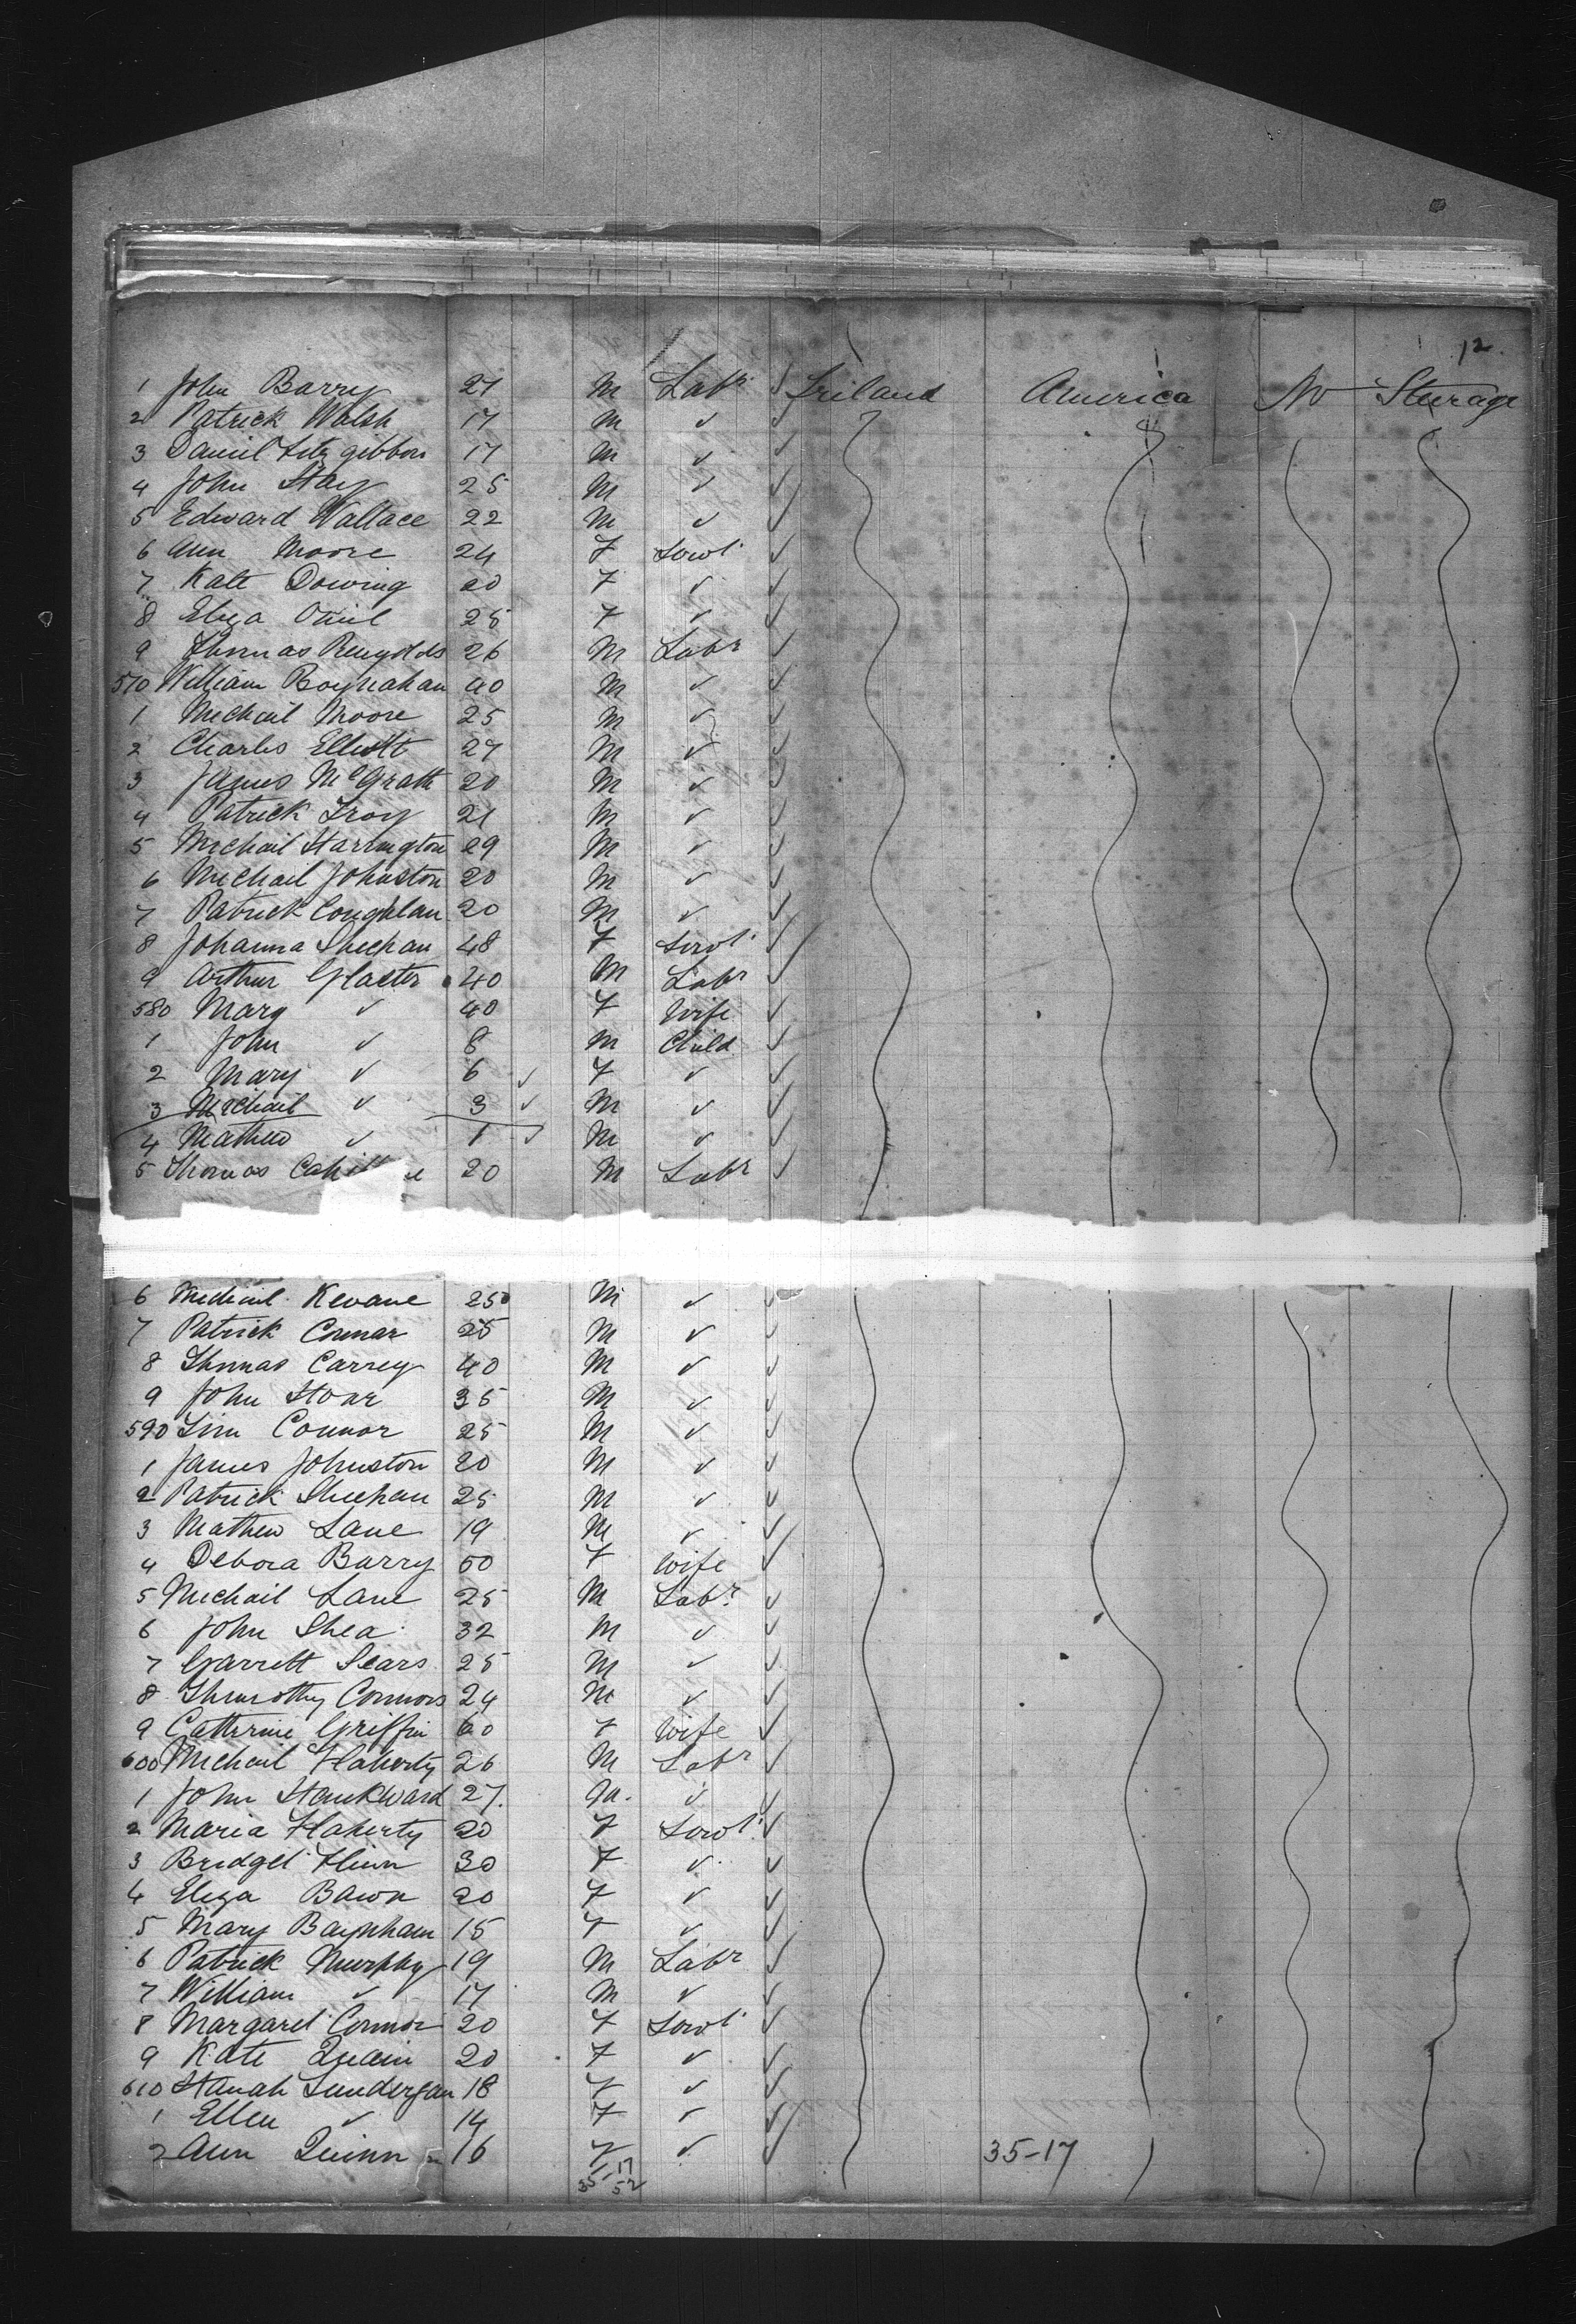 12.
1 John Barry 27 M Labr ✓ Ireland America No Steerage
2 Patrick Walsh 17 M ✓ ✓
3 Daniel Fitzgibbon 17 M ✓ ✓
4 John Hay 25 M ✓ ✓
5 Edward Wallace 22 M ✓ ✓
6 Ann Moore 24 F Servt ✓
7 Kate Dowing 20 F ✓ ✓
8 Eliza 25 F ✓ ✓
9 Thomas Reynolds 26 M Labr ✓
570 William Boynahan 40 M ✓ ✓
1 Michail Moore 25 M ✓ ✓
2 Charles Elliott 27 M ✓ ✓
3 James McGrath 20 M ✓ ✓
4 Patrick Troy 21 M ✓ ✓
5 Michail Harrington 29 M ✓ ✓
6 Michail Johnston 20 M ✓ ✓
7 Patrick Coughlan 20 M ✓ ✓
8 Johanna Sheehan 48 F Servt ✓
9 Arthur Glaster 40 M Labr ✓
580 Mary ✓ 40 F Wife ✓
1 John ✓ 8 M Child ✓
2 Mary ✓ 6 ✓ F ✓ ✓
3 Michail ✓ 3 ✓ M ✓ ✓
4 Mathew ✓ 1 ✓ M ✓ ✓
5 Thomas 20 M Labr ✓
6 Michail Kevane 25 M ✓ ✓
7 Patrick Connar 25 M ✓ ✓
8 Thomas Carrey 40 M ✓ ✓
9 John Hoar 35 M ✓ ✓
590 Tim Connor 25 M ✓ ✓
1 James Johnston 20 M ✓ ✓
2 Patrick Sheehan 25 M ✓ ✓
3 Mathew Lane 19 M ✓ ✓
4 Debora Barry 50 F Wife ✓
5 Michail Lane 25 M Labr ✓
6 John Shea 32 M ✓ ✓
7 Garrett Sears 25 M ✓ ✓
8 Thimothy Connors 24 M ✓ ✓
9 Catherine Griffin 60 F Wife ✓
600 Michail Flaherty 26 M Labr ✓
1 John Hankward 27. M. ✓ ✓
2 Maria Flaherty 20 F Servt ✓
3 Bridget Flinn 30 F ✓ ✓
4 Eliza Bawn 20 F ✓ ✓
5 Mary Baynham 15 F ✓ ✓
6 Patrick Murphy 19 M Labr ✓
7 William ✓ 17 M ✓ ✓
8 Margaret Connor 20 F Servt ✓
9 Kate Quain 20 F ✓ ✓
610 Hanah Lundergan 18 F ✓ ✓
1 Ellen ✓ 14 F ✓ ✓
2 Ann Quinn 16 F ✓ ✓ 35-17
35-17
52